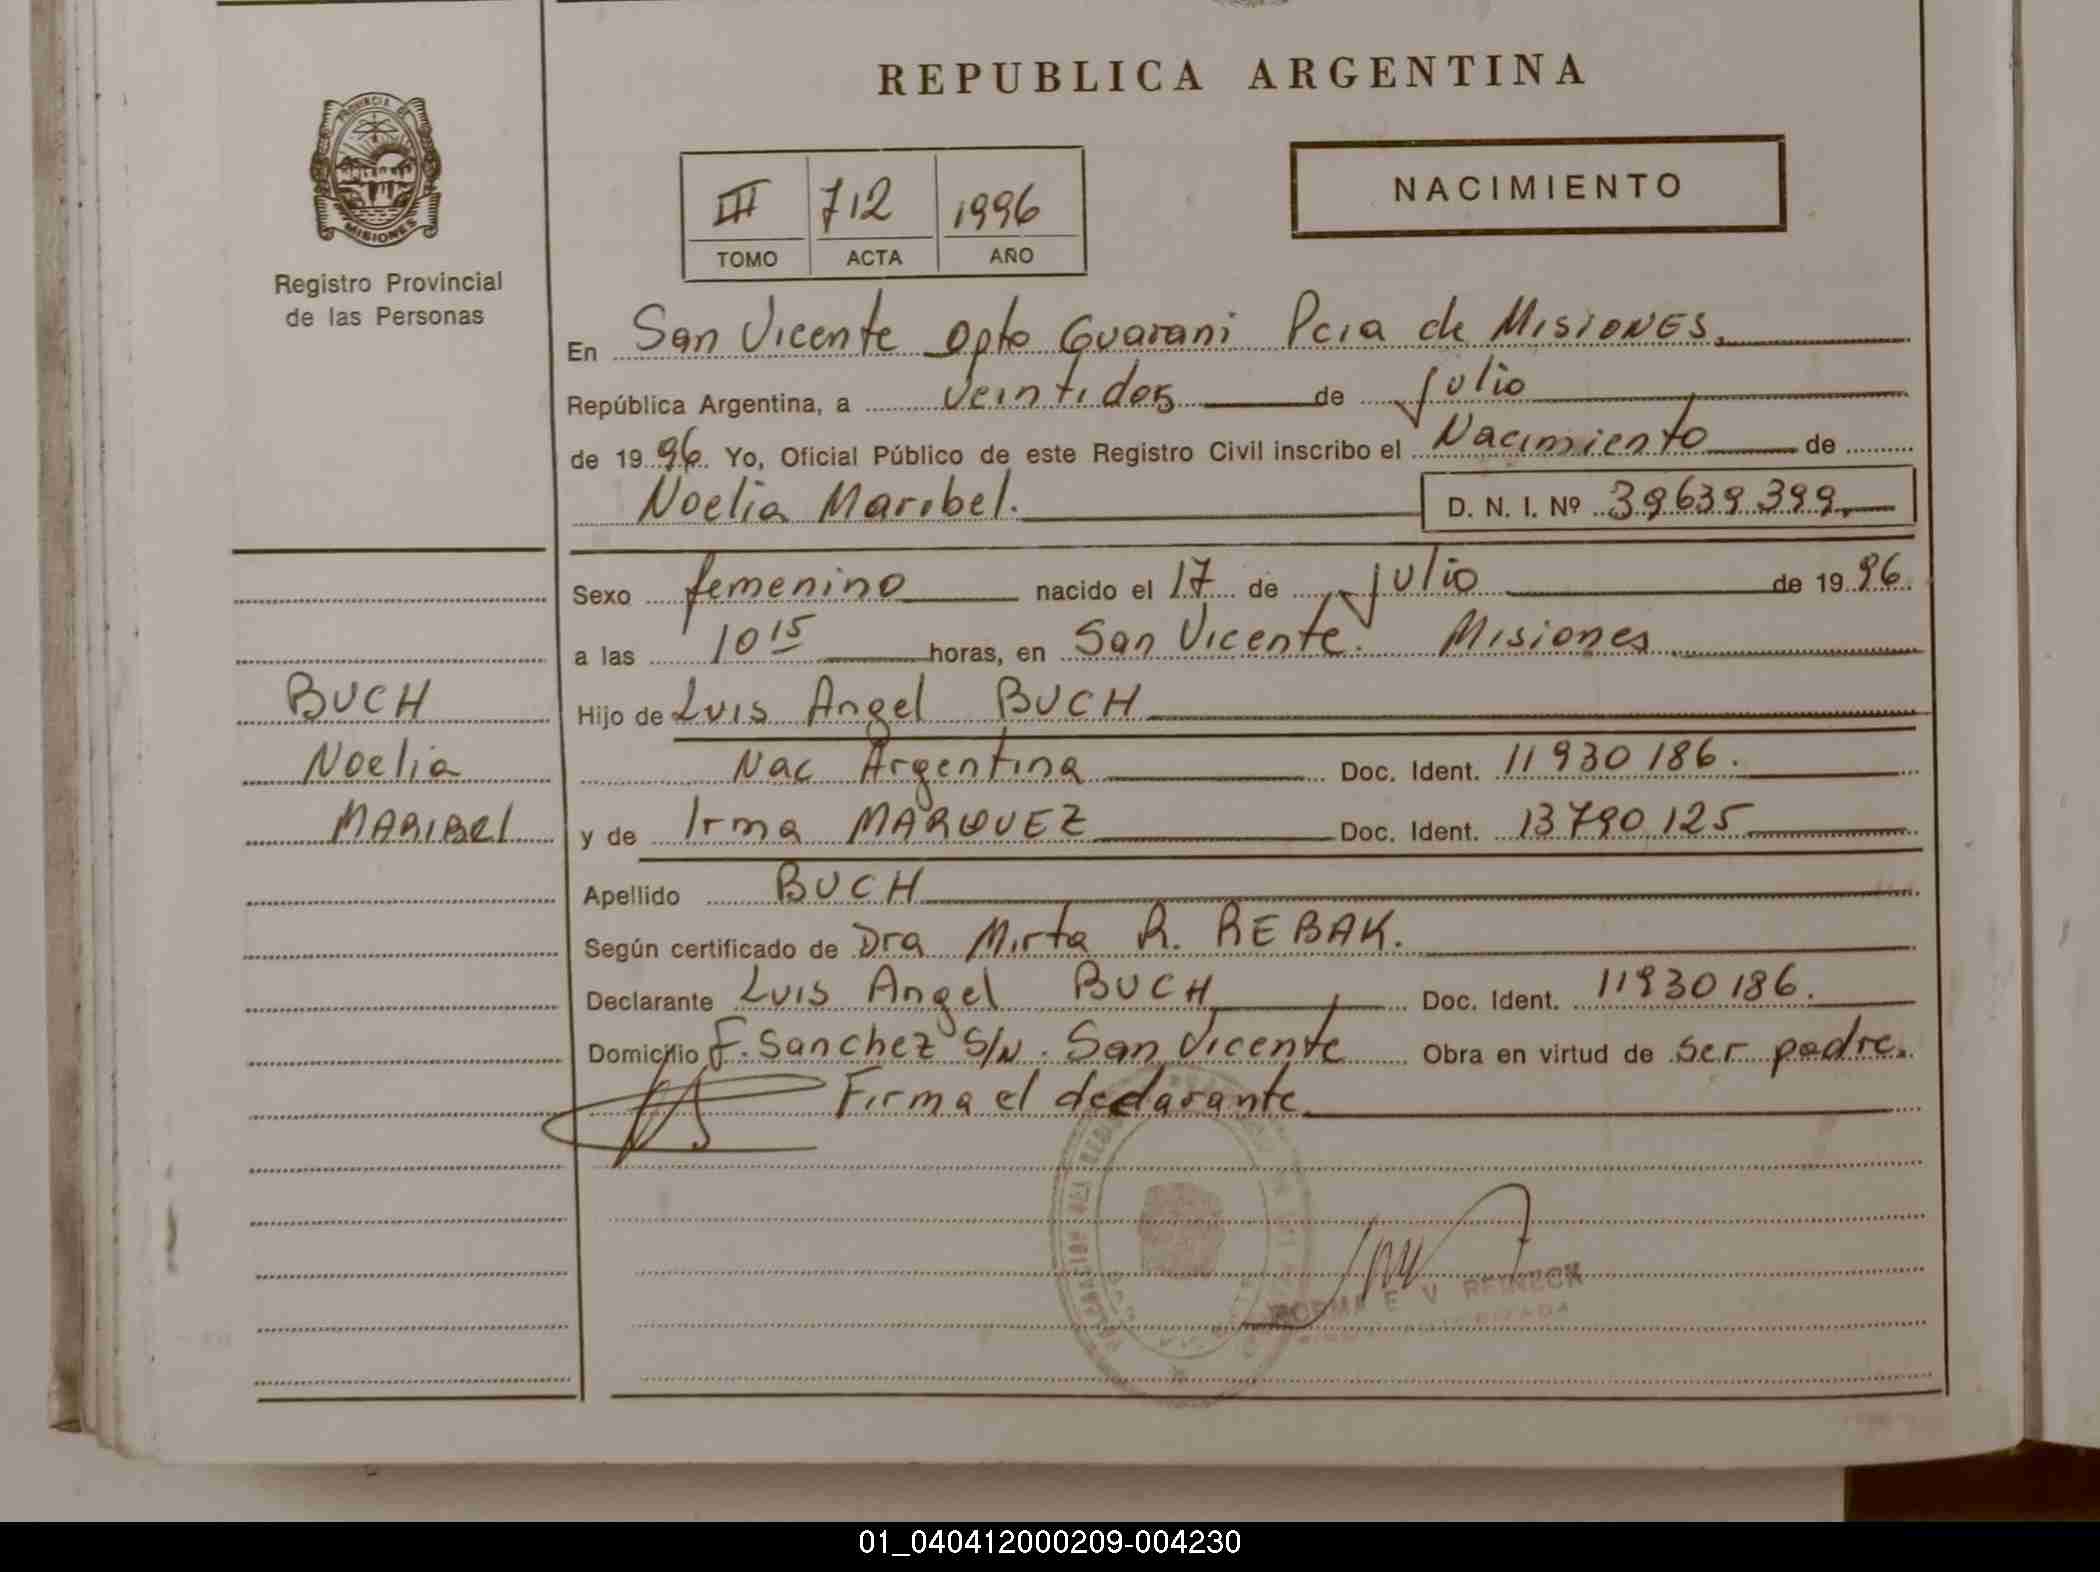 REPUBLICA ARGENTINA
PROVINCIA DE
MISIONES
Registro Provincial
de las Personas
NACIMIENTO
III 712 1996
TOMO ACTA AÑO
En San Vicente Dpto Guarani Pcia de MISIONES.
República Argentina, a veintidos de julio
de 1996. Yo, Oficial Público de este Registro Civil inscribo el Nacimiento de
Noelia Maribel. D. N. I. Nº 39639399
Sexo femenino nacido el 17 de julio de 1996.
a las 10 15 horas, en San Vicente. Misiones
BUCH
Noelia
MARIBEl
Hijo de Luis Angel BUCH
Nac Argentina Doc. Ident. 11930186.
y de Irma MARQUEZ Doc. Ident. 13790125
Apellido BUCH
Según certificado de Dra Mirta R. REBAK.
Declarante Luis Angel BUCH Doc. Ident. 11930186.
Domicilio F. Sanchez S/N. San Vicente Obra en virtud de ser padre.
Firma el declarante
NORMA E V REINECK
01_040412000209-004230